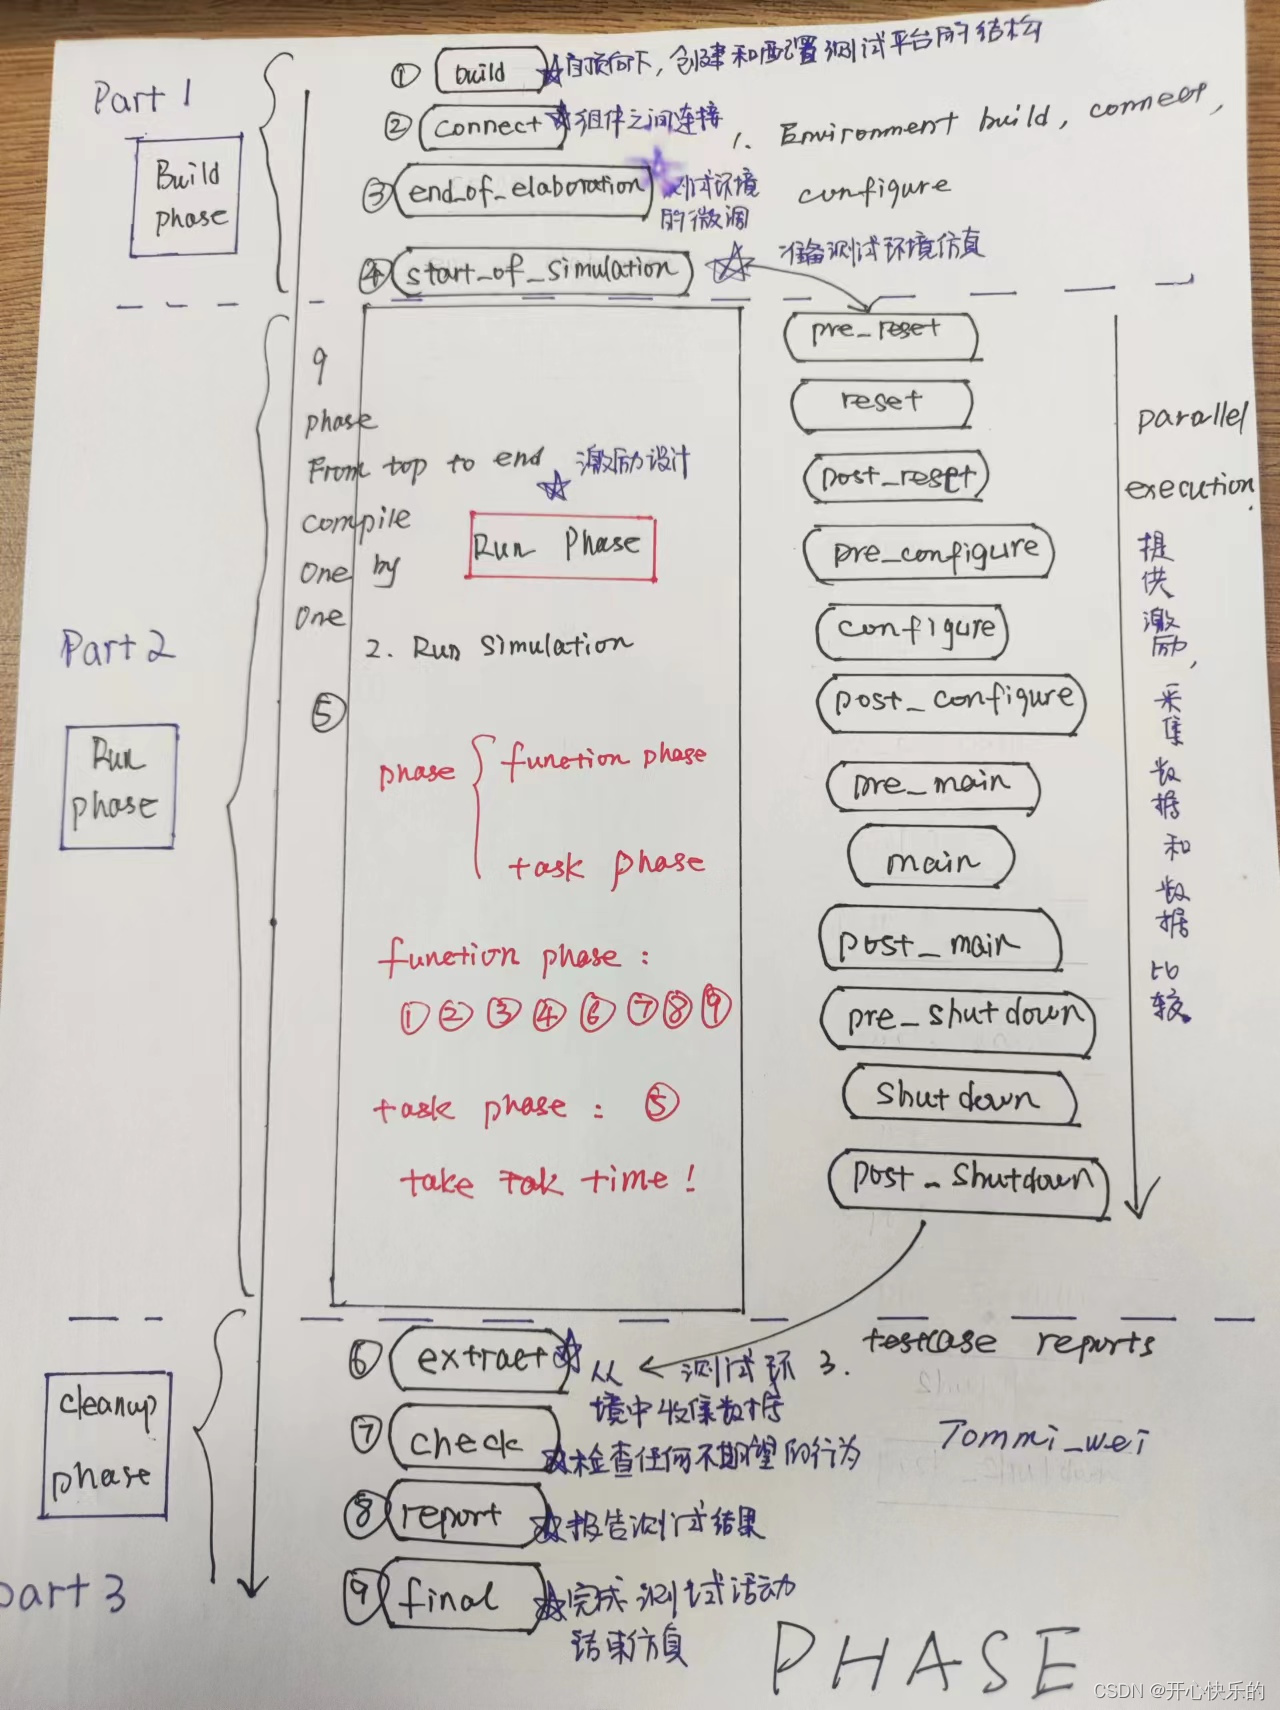 Part 1
Build
phase
① build 自顶向下，创建和配置测试平台的结构
② connect 组件之间连接
1. Environment build, connect,
configure
③ end_of_elaboration 测试环境
的微调
④ start_of_simulation 准备测试环境仿真
9
phase
From top to end
compile
one by
one
⑤
Part 2
Run
phase
激励设计
Run Phase
2. Run Simulation
phase { function phase
task phase
function phase :
① ② ③ ④ ⑥ ⑦ ⑧ ⑨
task phase : ⑤
take time !
pre_reset
reset
post_reset
pre_configure
configure
post_configure
pre_main
main
post_main
pre_shutdown
shutdown
post_shutdown
parallel
execution.
提供激励，采集数据和数据比较
cleanup
phase
part 3
⑥ extract 从测试环
境中收集数据
3. testcase reports
⑦ check 检查任何不期望的行为
Tommi_wei
⑧ report 报告测试结果
⑨ final 完成测试活动
结束仿真
PHASE
CSDN @开心快乐的